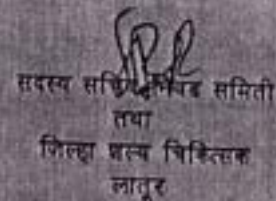 सदस्य सचिव निवड समिती
तथा
जिल्हा शल्य चिकित्सक
लातूर